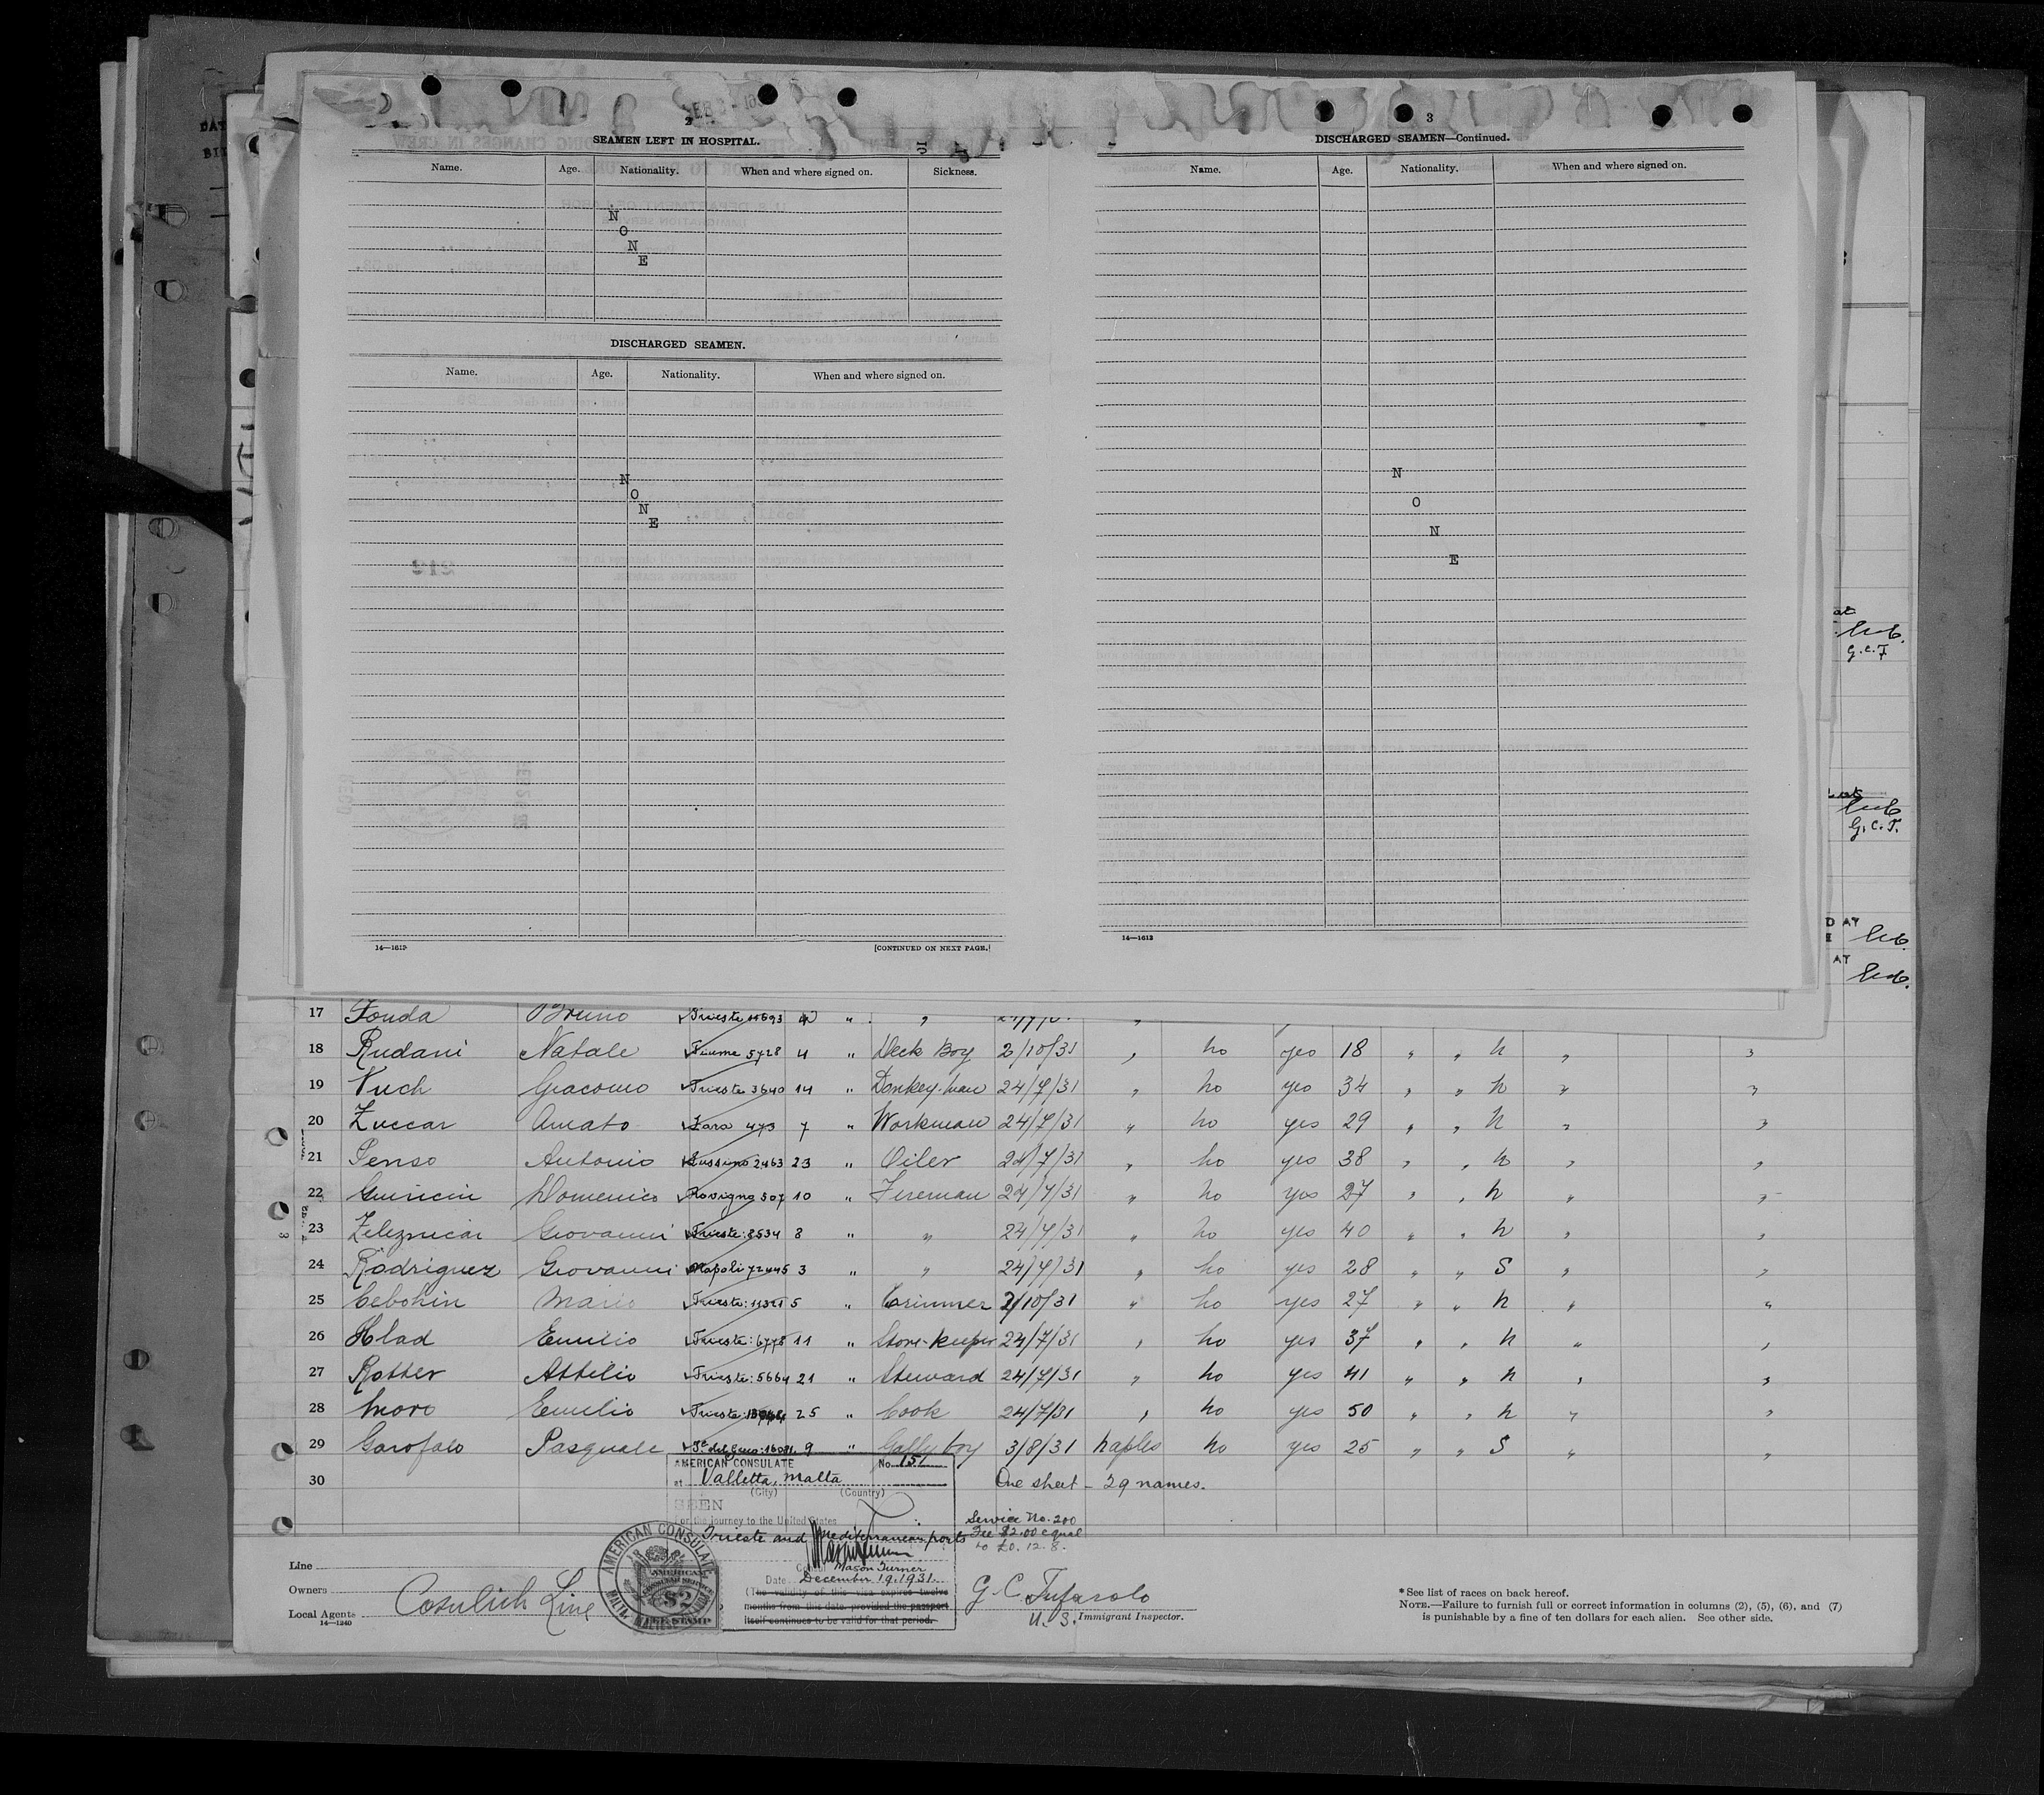 2
SEAMEN LEFT IN HOSPITAL.
Name. Age. Nationality. When and where signed on. Sickness.
N
O
N
E
DISCHARGED SEAMEN.
Name. Age. Nationality. When and where signed on.
N
O
N
E
[CONTINUED ON NEXT PAGE.]
3
DISCHARGED SEAMEN—Continued.
Name. Age. Nationality. When and where signed on.
N
O
N
E
14—1613
G.C.T.
17 Fonda Bruno
18 Rudani Natale Fiume 5728 4 " Deck Boy 2/10/31 " no yes 18 " " n " "
19 Vuch Giacomo Trieste 3640 14 " Donkey-man 24/7/31 " no yes 34 " " n " "
20 Zuccar Amato Zara 473 7 " Workman 24/7/31 " no yes 29 " " n " "
21 Penso Antonio Lussino 2463 23 " Oiler 24/7/31 " no yes 38 " " n " "
22 Domenico Rovigno 507 10 " Fireman 24/7/31 " no yes 27 " " n " "
23 Zeleznicar Giovanni Trieste: 8534 8 " " 24/7/31 " no yes 40 " " n " "
24 Rodriguez Giovanni Napoli 72445 3 " " 24/7/31 " no yes 28 " " S " "
25 Cebohin Mario Trieste: 11321 5 " Trimmer 2/10/31 " no yes 27 " " n " "
26 Hlad Emilio Trieste: 6778 11 " Store-keeper 24/7/31 " no yes 37 " " n " "
27 Rotter Attilio Trieste: 5664 21 " Steward 24/7/31 " no yes 41 " " n " "
28 Moro Emilio Trieste: 25 " Cook 24/7/31 " no yes 50 " " n " "
29 Garofalo Pasquale 9 " Gally boy 3/8/31 Naples no yes 25 " " S " "
30 One sheet - 29 names.
AMERICAN CONSULATE No. 151
at Valletta, Malta
(City) (Country)
SEEN
For the journey to the United States
Trieste and Mediterranean ports
Mason Turner
Date December 19, 1931.
(The validity of this visa expires twelve
months from this date, provided the passport
itself continues to be valid for that period.
Service No. 200
Fee $2.00 equal
to £0. 12. 8.
AMERICAN CONSULATE
MALTA
AMERICAN
CONSULAR SERVICE
$2
FEE STAMP
Line
Owners
Local Agents Cosulich Line
14—1240
G. C. Tufarolo
U. S. Immigrant Inspector.
*See list of races on back hereof.
NOTE.—Failure to furnish full or correct information in columns (2), (5), (6), and (7)
is punishable by a fine of ten dollars for each alien. See other side.